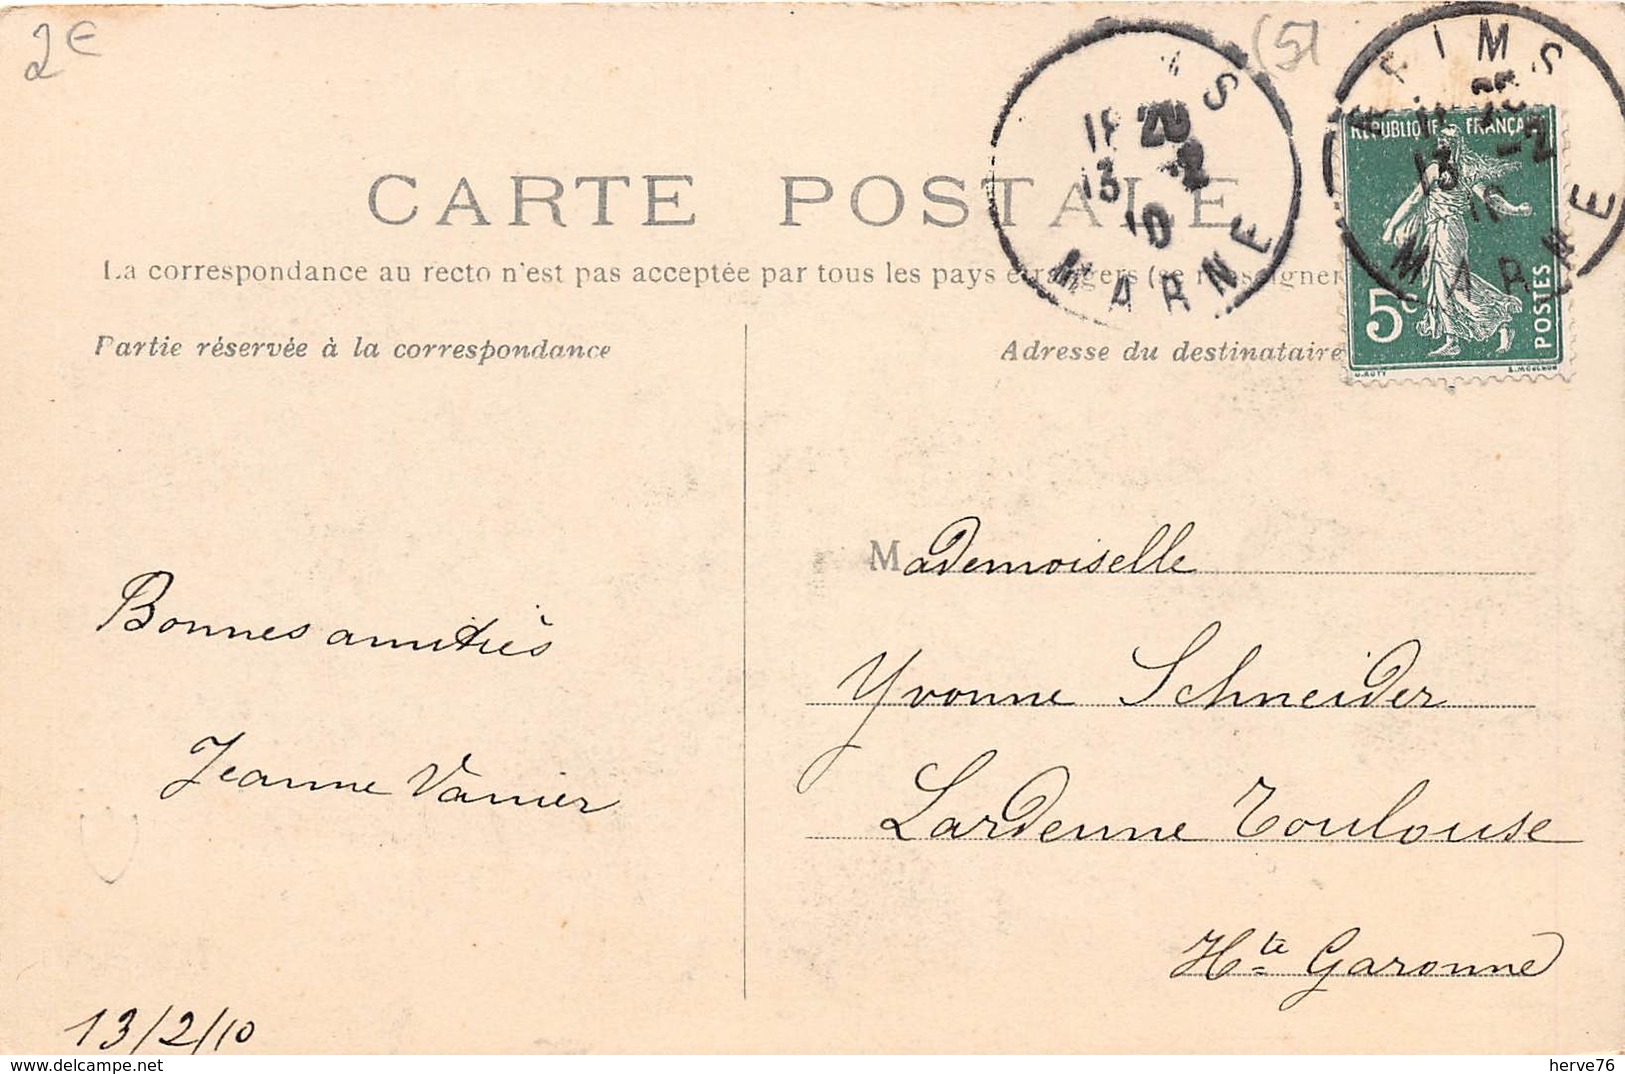 2€
(51
REIMS
18 20
13 -2
10
MARNE
REPUBLIQUE FRANÇAISE
5c
POSTES
O. ROTY
E. MOUCHON
CARTE POSTALE
La correspondance au recto n'est pas acceptée par tous les pays étrangers (se renseigner
Partie réservée à la correspondance
Adresse du destinataire
Bonnes amitiès
Jeanne Vanier
13/2/10
Mademoiselle
Yvonne Schneider
Lardenne Toulouse
Hte Garonne
herve76